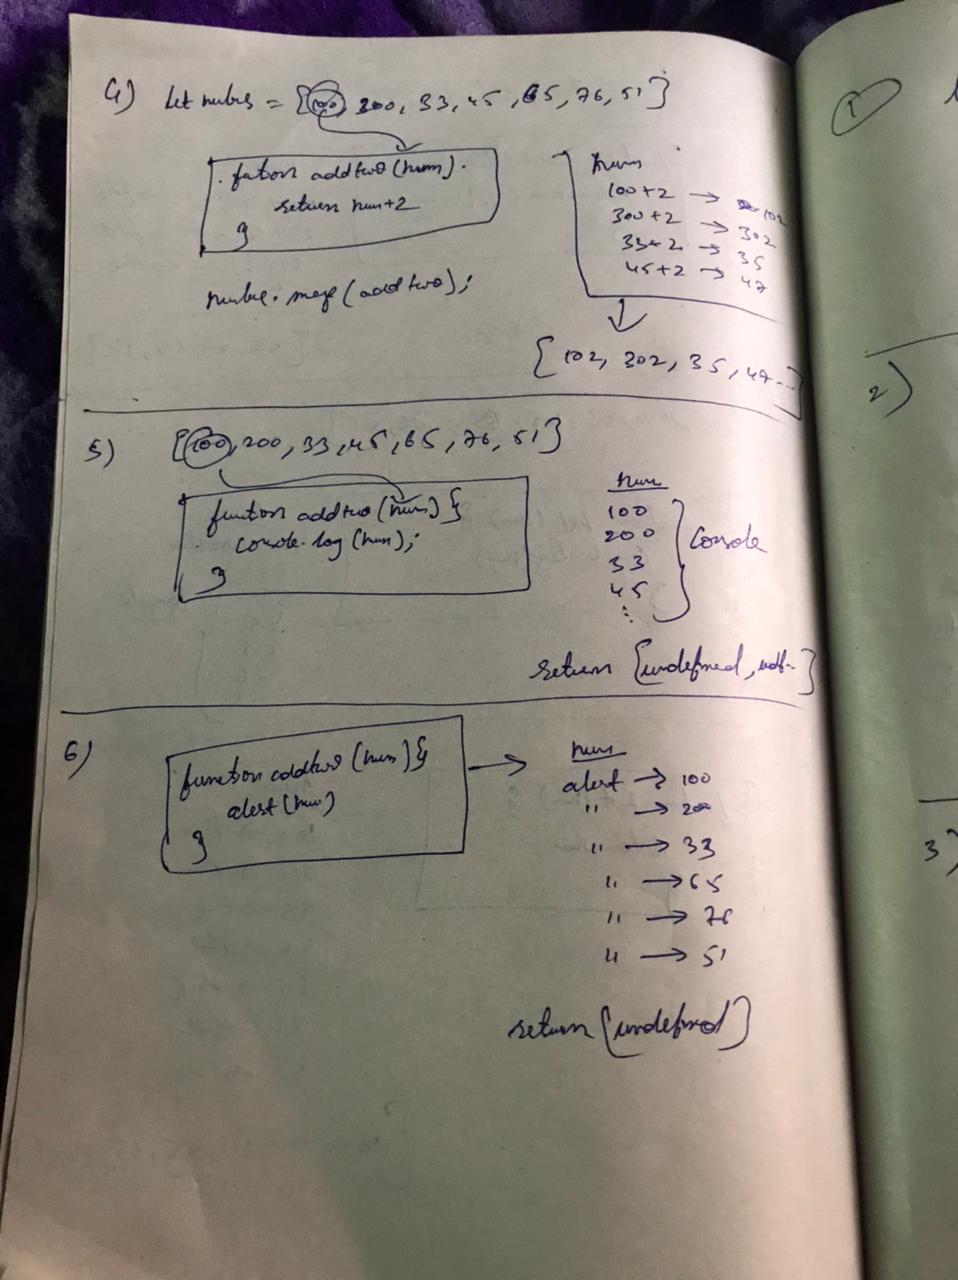 4) let nubrs = [100, 300, 33, 45, 65, 76, 51]
fution addtwo (num).
return num+2
}
num
100+2 → 102
300+2 → 302
33+2 → 35
45+2 → 47
. map (addtwo);
[102, 302, 35, 47...]
5) [100, 200, 33, 45, 65, 76, 51]
function addtwo (num) {
console.log (num);
}
num
100
200
33
45
⋮
Console
return [undefined, undf..]
6)
function addtwo (num) {
alert (num)
}
→
num
alert → 100
" → 200
" → 33
" → 65
" → 76
" → 51
return [undefined]
1
2)
3)